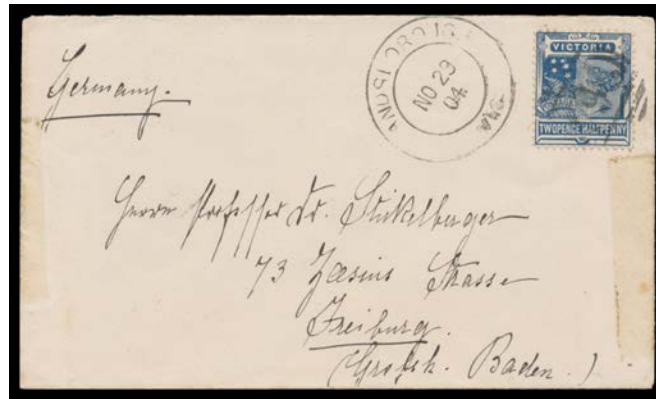 Germany.
NO 23
04
VICTORIA
TWOPENCE HALFPENNY
Herrn Professor Dr. Stickelberger
73 Zasius Strasse
Freiburg.
(Grossh. Baden.)